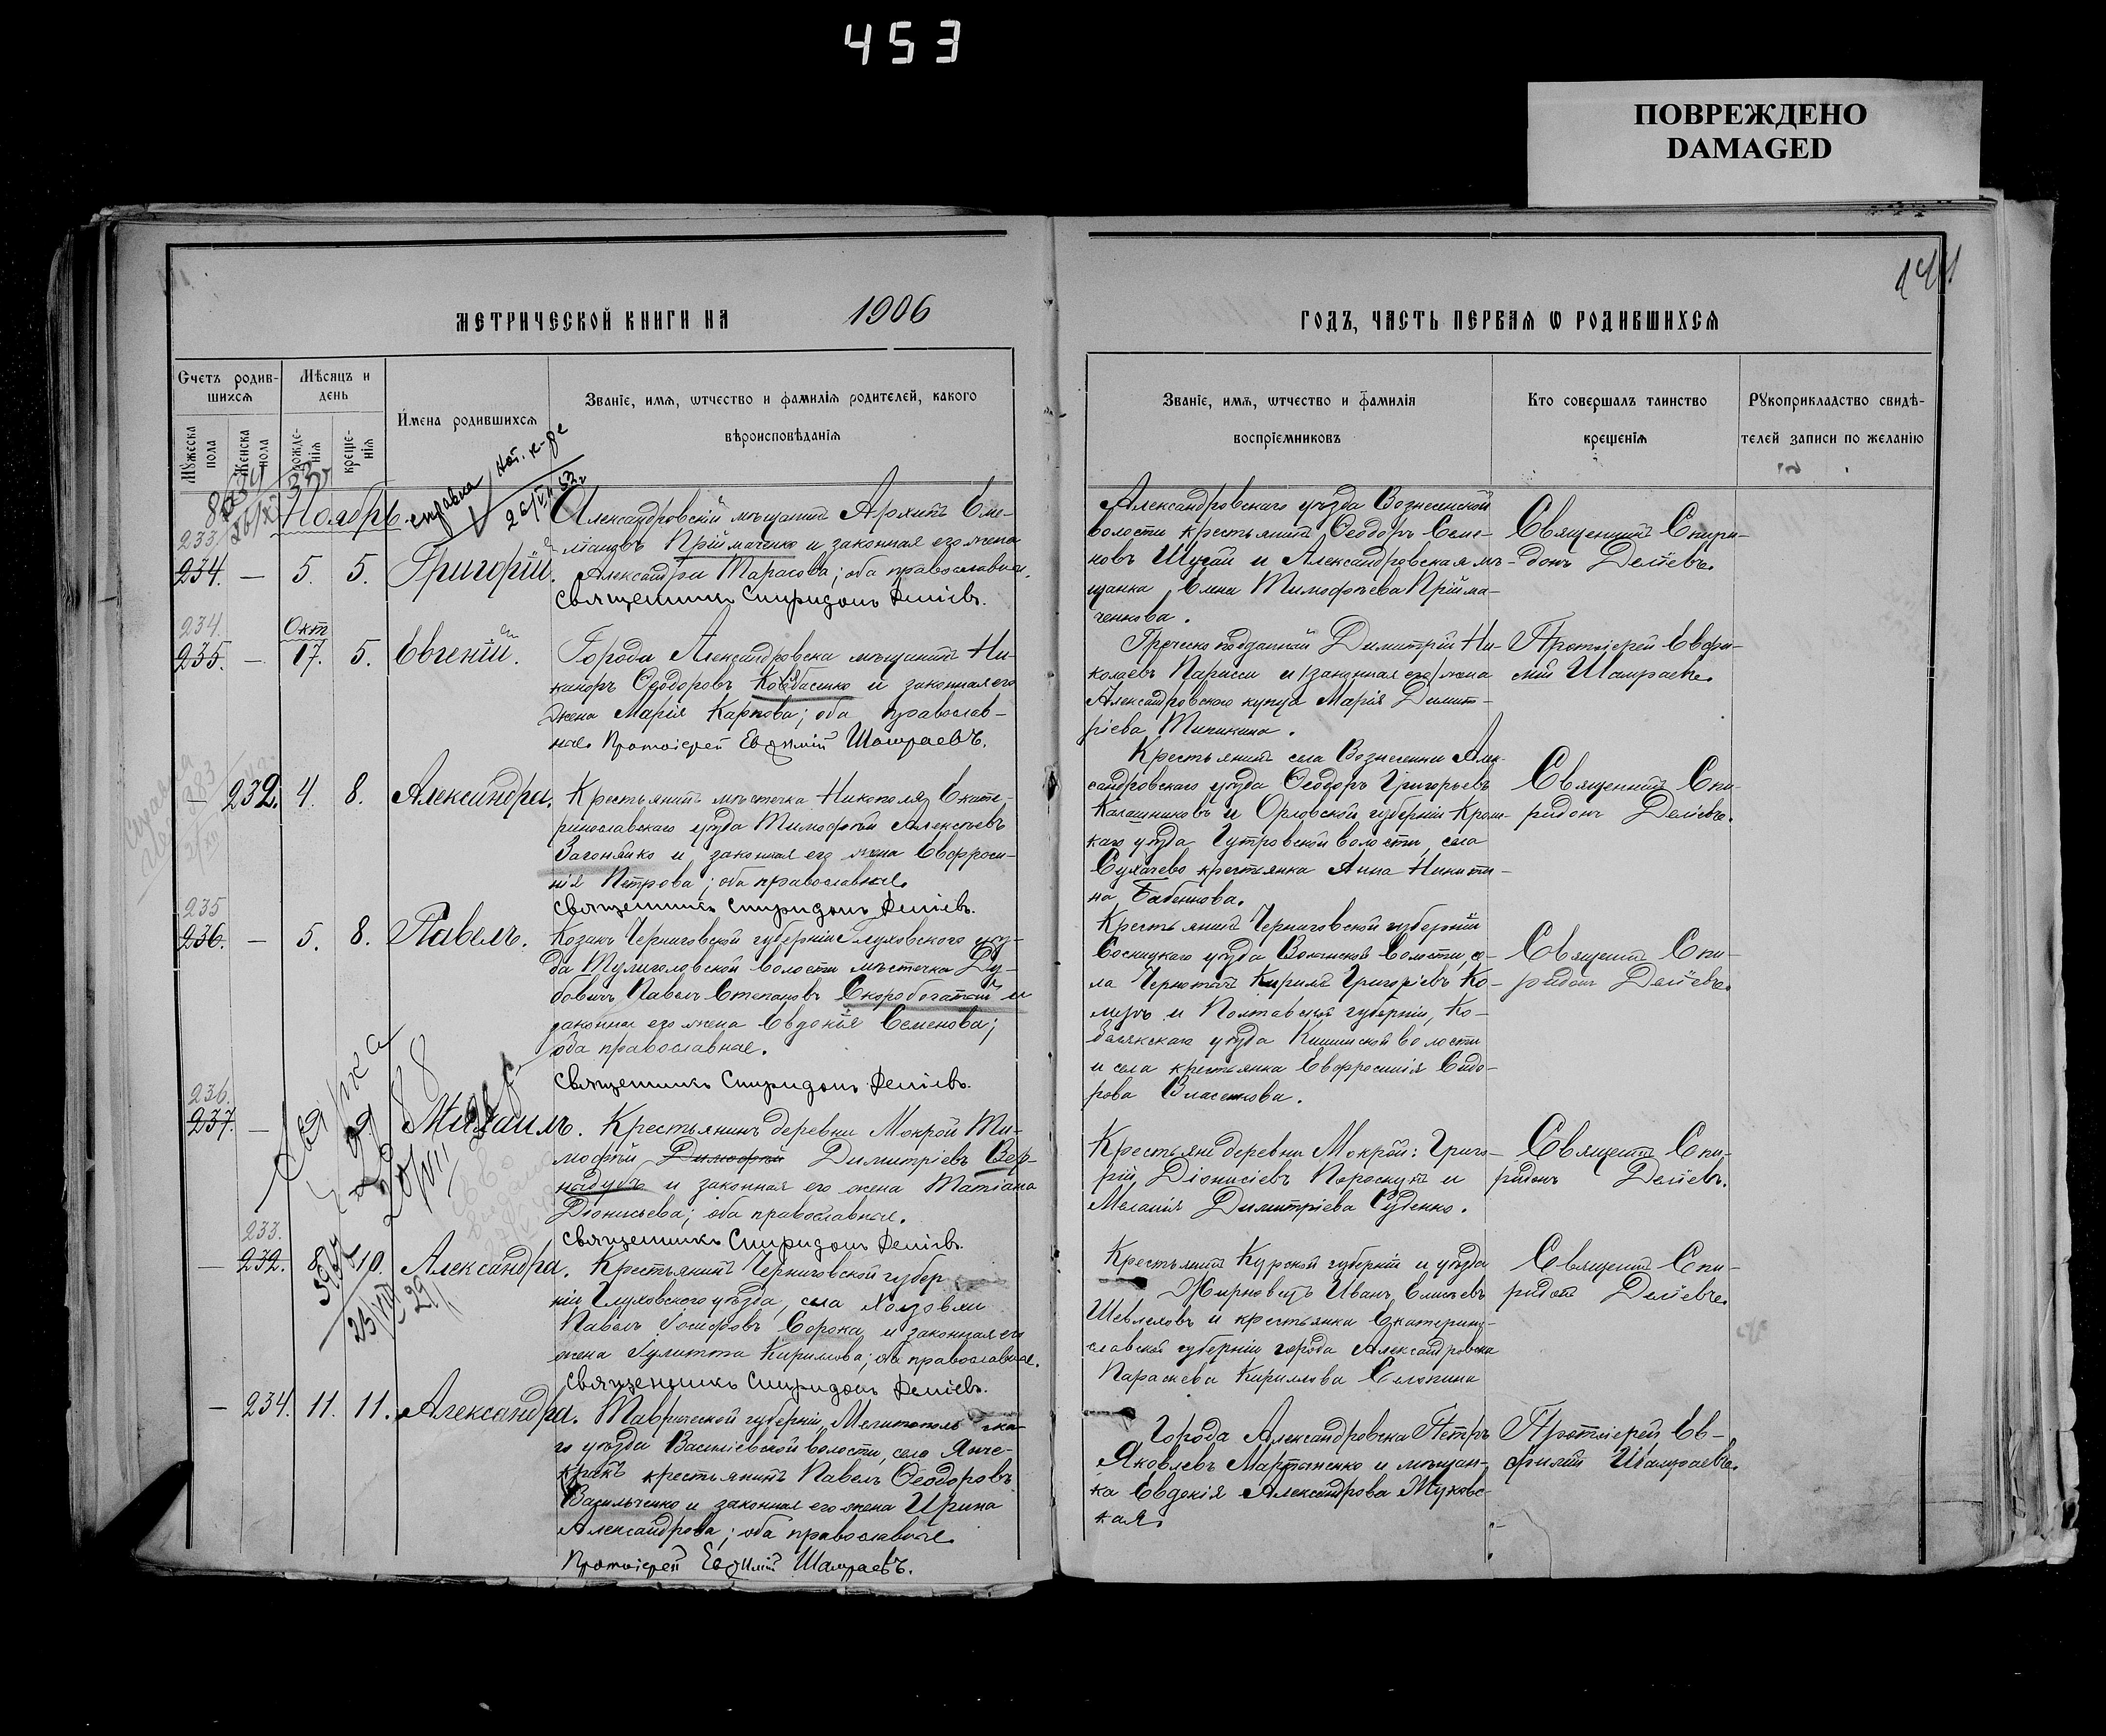 453
ПОВРЕЖДЕНО
DAMAGED
141
МЕТРИЧЕСКОЙ КНИГИ НА 1906
ГОДЪ, ЧАСТЬ ПЕРВАЯ Ѡ РОДИВШИХСЯ
Счетъ родив-
шихся
Мѣсяцъ и
день
Имена родившихся
Званіе, имя, ѡтчество и фамилія родителей, какого
вѣроисповѣданія
Мужеска
пола
Женска
пола
рожде-
нія
креще-
нія
Званіе, имя, ѡтчество и фамилія
воспріемниковъ
Кто совершалъ таинство
крещенія
Рукоприкладство свидѣ-
телей записи по желанію
Ноябрь
справка
233.
234. — 5. 5. Григорій.
Александровскій мѣщанинъ Архипъ Еме-
ліановъ Пріймаченко и законная его жена
Александра Тарасова; оба православные.
Священникъ Спиридонъ Деліевъ.
Александровскаго уѣзда Вознесенской
волости крестьянинъ Ѳеодоръ Семе-
новъ Шугай и Александровская мѣ-
щанка Елена Тимофѣева Прійма-
ченкова.
Священникъ Спири-
донъ Деліевъ.
234.
Окт
235. — 17. 5. Евгеній.
Города Александровска мѣщанинъ Ни-
каноръ Ѳеодоровъ Ковбасенко и законная его
жена Марія Карпова; оба православ-
ные. Протоіерей Евѳимій Шамраевъ.
Греческо подданный Димитрій Ни-
колаевъ Париси и законная его жена
Александровскаго купца Марія Димит-
ріева Типикина.
Протоіерей Евѳи-
мій Шамраевъ.
— 232. 4. 8. Александра.
Крестьянинъ мѣстечка Никополя, Екате-
ринославскаго уѣзда Тимофей Алексѣевъ
Загонянко и законная его жена Евфроси-
нія Петрова; оба православные.
Священникъ Спиридонъ Деліевъ.
Крестьянинъ села Вознесенки Алек-
сандровскаго уѣзда Ѳеодоръ Григорьевъ
Калашниковъ и Орловской губерніи Кром-
скаго уѣзда Гутровской волости, села
Сухачево крестьянка Анна Никити-
на Бабенкова.
Священникъ Спи-
ридонъ Деліевъ.
235
236. — 5. 8. Павелъ.
Козакъ Черниговской губерніи Глуховского уѣз-
да Тулиголовской волости мѣстечка Ду-
бовичъ Павелъ Степановъ Скоробогатый и
законная его жена Евдокія Семенова;
оба православные.
Священникъ Спиридонъ Деліевъ.
Крестьянинъ Черниговской губерніи
Сосницкаго уѣзда Волынской волости, се-
ла Чернотичъ Кирилъ Григоріевъ Ко-
меръ и Полтавской губерніи, Ко-
белякскаго уѣзда Кишинской волости
и села крестьянка Евфросинія Сидо-
рова Власенкова.
Священникъ Спи-
ридонъ Деліевъ.
236.
237. — Михаилъ.
Крестьянинъ деревни Мокрой Ти-
мофѣй Димитріевъ Вер-
ныдубъ и законная его жена Татіана
Діонисьева; оба православные.
Священникъ Спиридонъ Деліевъ.
Крестьяне деревни Мокрой: Григо-
рій Діонисіевъ Пороскунъ и
Меланія Димитріева Руденко.
Священникъ Спи-
ридонъ Деліевъ.
233.
— 232. 8. 10. Александра.
Крестьянинъ Черниговской губер-
ніи Глуховского уѣзда, села Холдовки
Павелъ Іосифовъ Сорока и законная его
жена Іулитта Кирилова; оба православные.
Священникъ Спиридонъ Деліевъ.
Крестьянинъ Курской губерніи и уѣзда
Жирновецъ Иванъ Елисѣевъ
Шевлековъ и крестьянка Екатерино-
славской губерніи города Александровска
Параскева Кириллова Селопина
Священникъ Спи-
ридонъ Деліевъ.
— 234. 11. 11. Александра.
Таврической губерніи, Мелитопольска-
го уѣзда Васильевской волости, села Янче-
кракъ крестьянинъ Павелъ Ѳеодоровъ
Вазильченко и законная его жена Ирина
Александрова; оба православные.
Протоіерей Евѳимій Шамраевъ.
Города Александровска Петръ
Яковлевъ Мартыненко и мѣщан-
ка Евдокія Александрова Жуковс-
кая.
Протоіерей Ев-
фимій Шамраевъ.